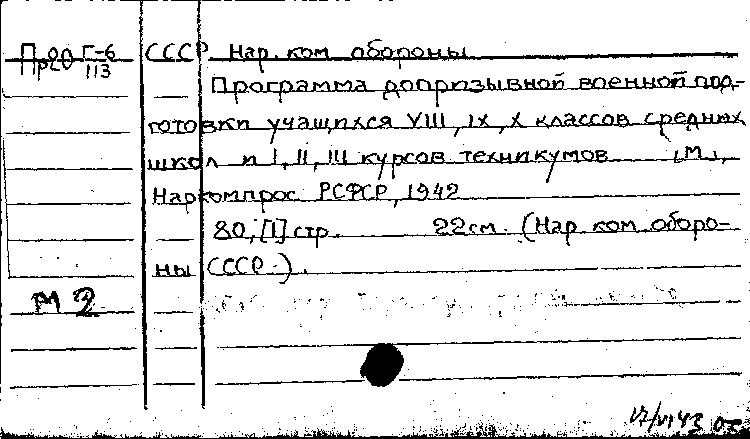 Г-6 СССР Нар. ком обороны
113
Программа допризывной военной под-
готовки учащихся VIII, IX, X классов средних
школ и I, II, III курсов техникумов [М],
Наркомпрос РСФСР, 1942
80, [1] стр. 22см. (Нар ком оборо-
ны СССР.).
М 2